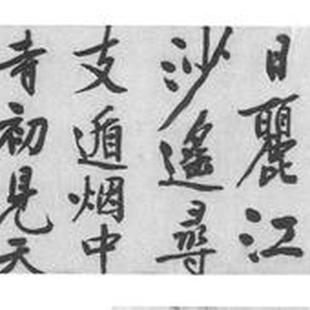 日麗江
沙遙尋
支遁烟中
寺初見天